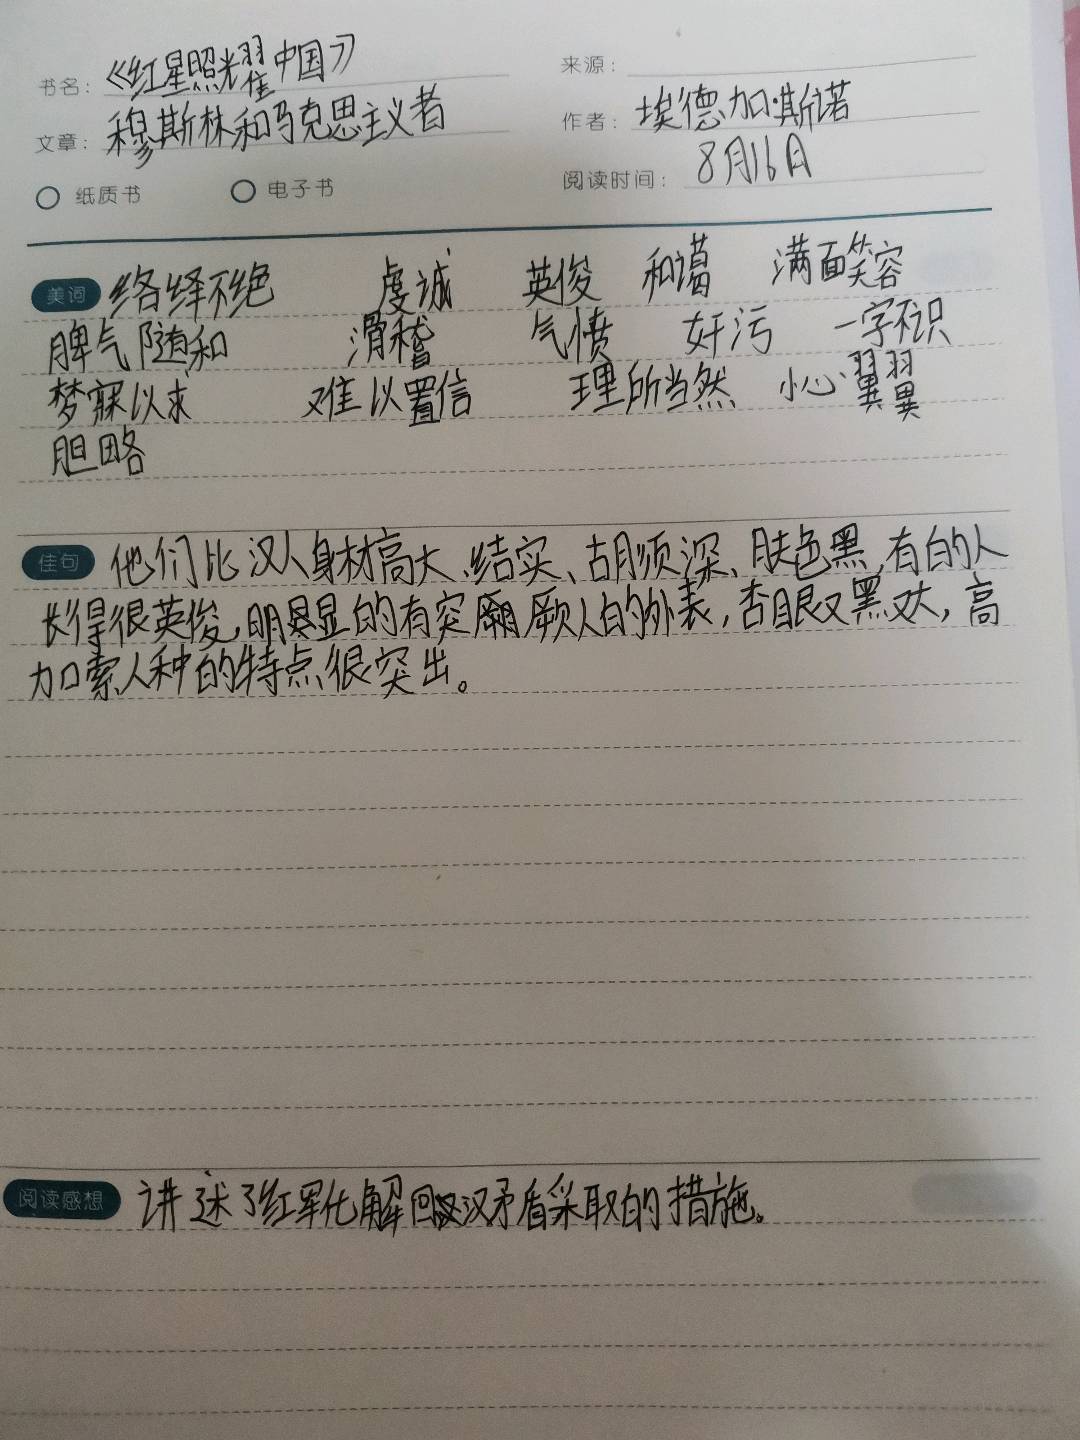 书名：《红星照耀中国》 来源：
文章：穆斯林和马克思主义者 作者：埃德加·斯诺
纸质书 电子书 阅读时间：8月16日
美词 络绎不绝 虔诚 英俊 和谐 满面笑容
脾气随和 滑稽 气愤 奸污 一字不识
梦寐以求 难以置信 理所当然 小心翼翼
胆略
佳句 他们比汉人身材高大、结实、胡须深、肤色黑，有的人
长得很英俊，明显的有突厥人的外表，杏眼又黑又大，高
加索人种的特点很突出。
阅读感想 讲述了红军化解回汉矛盾采取的措施。